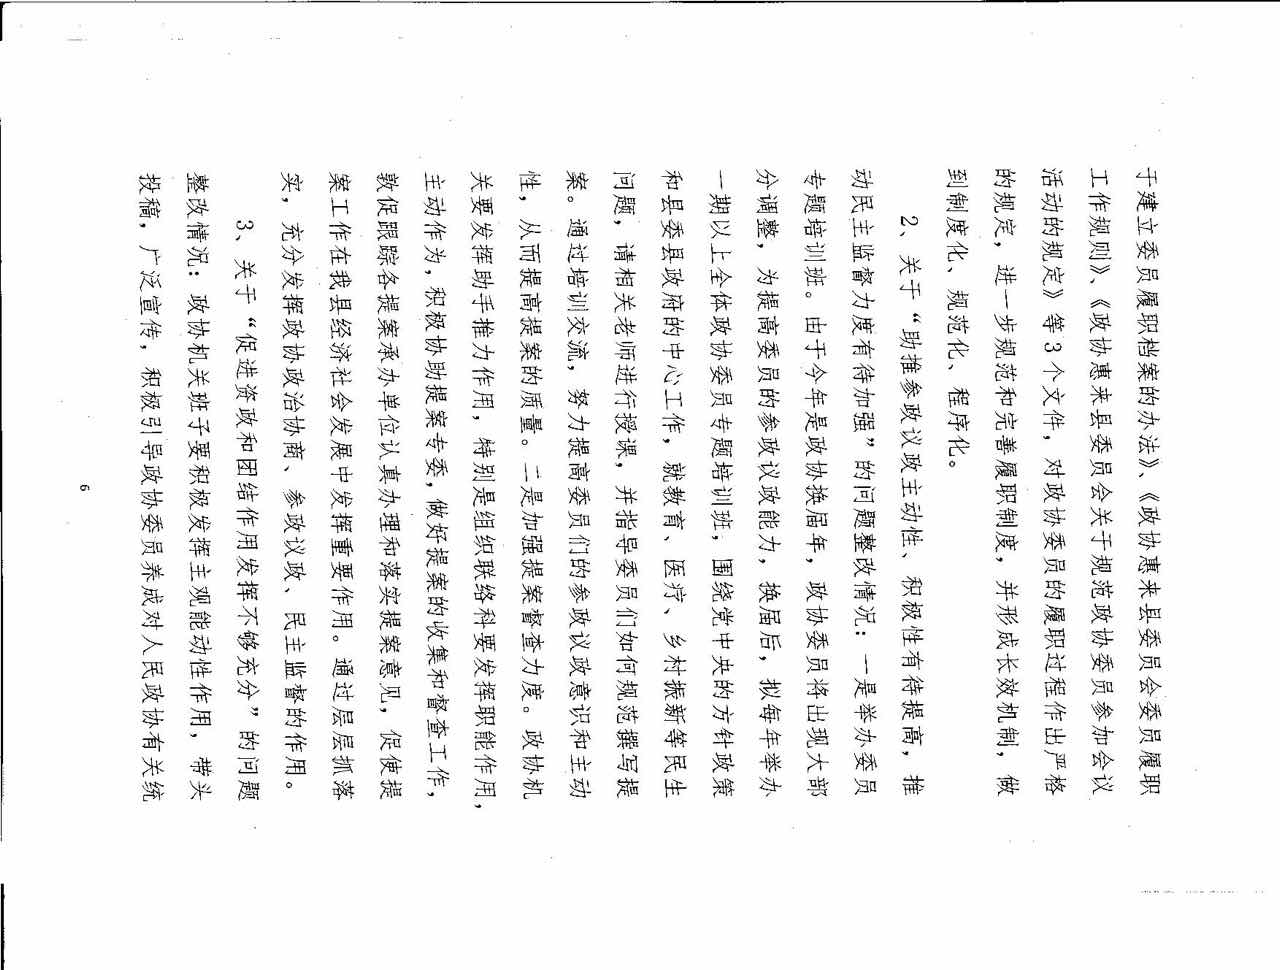 于建立委员履职档案的办法》、《政协惠来县委员会委员履职
工作规则》、《政协惠来县委员会关于规范政协委员参加会议
活动的规定》等3个文件，对政协委员的履职过程作出严格
的规定，进一步规范和完善履职制度，并形成长效机制，做
到制度化、规范化、程序化。
2、关于“助推参政议政主动性、积极性有待提高，推
动民主监督力度有待加强”的问题整改情况：一是举办委员
专题培训班。由于今年是政协换届年，政协委员将出现大部
分调整，为提高委员的参政议政能力，换届后，拟每年举办
一期以上全体政协委员专题培训班，围绕党中央的方针政策
和县委县政府的中心工作，就教育、医疗、乡村振新等民生
问题，请相关老师进行授课，并指导委员们如何规范撰写提
案。通过培训交流，努力提高委员们的参政议政意识和主动
性，从而提高提案的质量。二是加强提案督查力度。政协机
关要发挥助手推力作用，特别是组织联络科要发挥职能作用，
主动作为，积极协助提案专委，做好提案的收集和督查工作，
敦促跟踪各提案承办单位认真办理和落实提案意见，促使提
案工作在我县经济社会发展中发挥重要作用。通过层层抓落
实，充分发挥政协政治协商、参政议政、民主监督的作用。
3、关于“促进资政和团结作用发挥不够充分”的问题
整改情况：政协机关班子要积极发挥主观能动性作用，带头
投稿，广泛宣传，积极引导政协委员养成对人民政协有关统
6